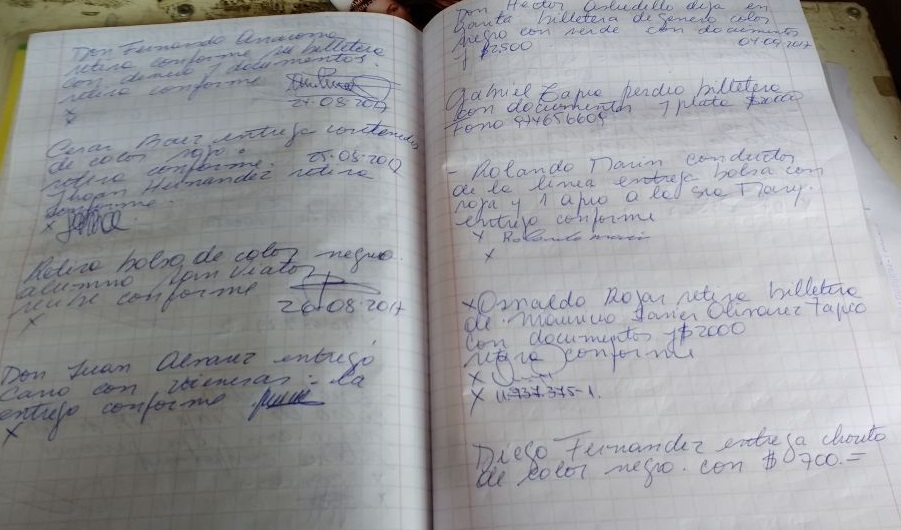 Don Fernando
retira conforme su billetera
con dinero y documentos.
retira conforme
24-08-2017
x
Cesar Baez entrega contenedor
de color rojo.
retira conforme. 25-08-2017
Hernandez retira
conforme.
x
Retira bolso de color negro.
alumno San Viator
recibe conforme
26-08-2017
x
Don Juan Alvarez entregó
carro con vienesas - la
entrego conforme
x
Don Hector Astudillo deja en
Garita billetera de genero color
negro con verde con documentos
y $2500 04-09-2017
Gabriel Tapia perdio billetera
con documentos y plata
Fono 974656609
- Rolando Marin conductor
de la linea entrega bolsa con
ropa y 1 apio a la Sra Mary.
entrega conforme
x Rolando Marin
x
x Osvaldo Rojas retira billetera
de Mauricio Javier Olivarez Tapia
con documentos y $2000
retira conforme
x
x 11-937.375-1.
Diego Fernandez entrega chauto
de color negro. con $ 700.=